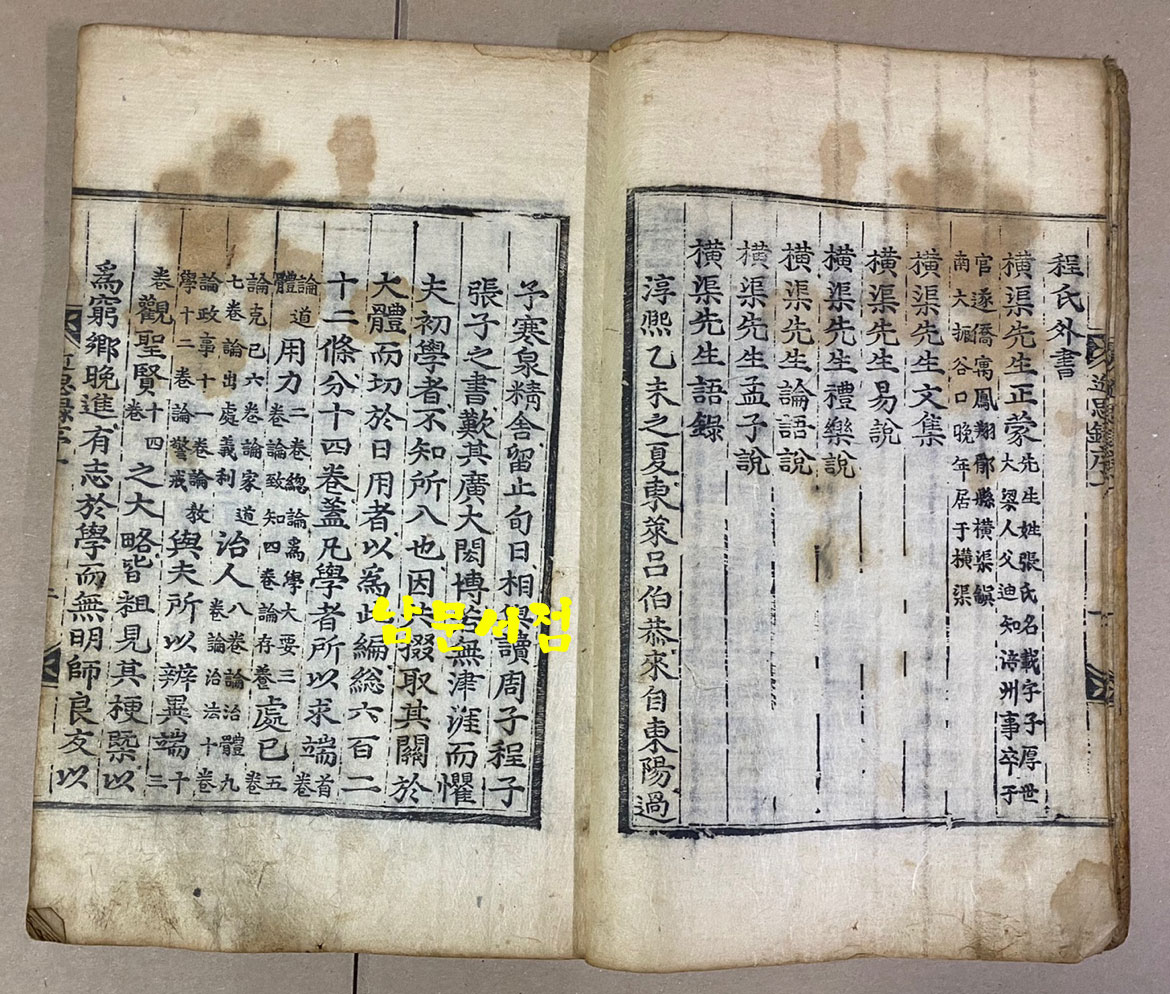 程氏外書
橫渠先生正蒙 先生姓張氏名載字子厚世大梁人父迪知涪州事卒于
官遂僑寓鳳翔郿縣橫渠鎭南大振谷口晚年居于橫渠
橫渠先生文集
橫渠先生易說
橫渠先生禮樂說
橫渠先生論語說
橫渠先生孟子說
橫渠先生語錄
淳熙乙未之夏東萊呂伯恭來自東陽過
予寒泉精舍留止旬日相與讀周子程子
張子之書歎其廣大閎博若無津涯而懼
夫初學者不知所入也因共掇取其關於
大體而切於日用者以爲此編緫六百二
十二條分十四卷蓋凡學者所以求端 首卷
論道體 用力 二卷緫論爲學大要三卷論致知四卷論存養 處已 五卷
論克己六卷論家道七卷論出處義利 治人 八卷論治體九卷論治法十卷
論政事十一卷論教學十二卷論警戒 與夫所以辨異端 十三
卷 觀聖賢 十四卷 之大略皆粗見其梗槩以
爲窮鄕晚進有志於學而無明師良友以
近思錄序
남문서점